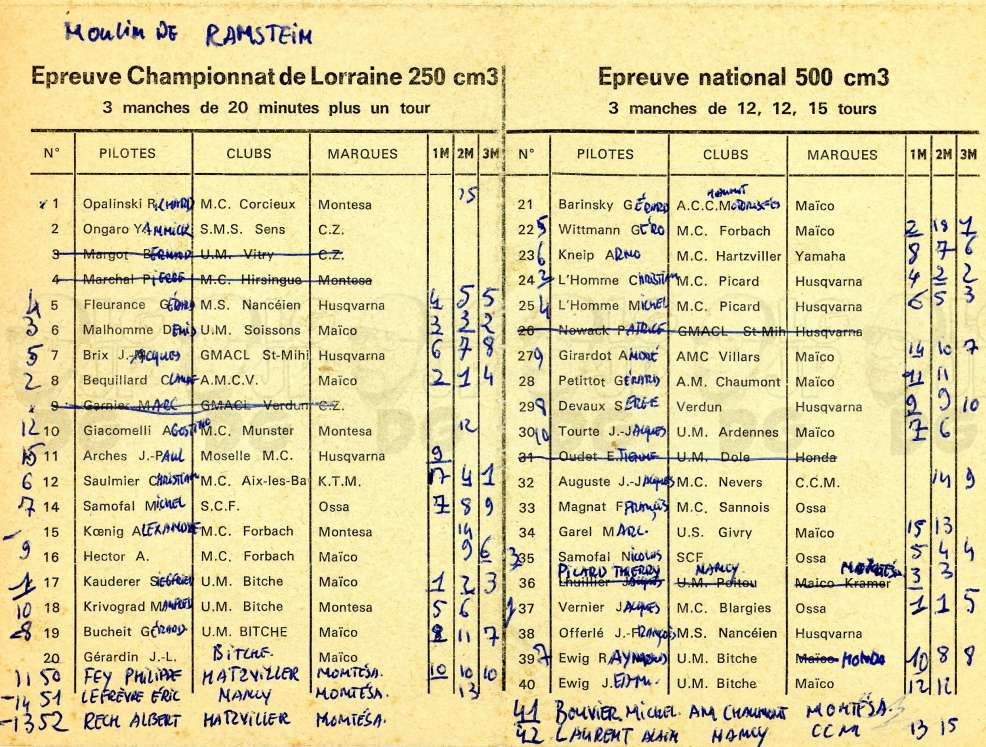 Moulin DE RAMSTEIN
Epreuve Championnat de Lorraine 250 cm3
3 manches de 20 minutes plus un tour
N° PILOTES CLUBS MARQUES 1M 2M 3M
1 Opalinski RICHARD M.C. Corcieux Montesa 15
2 Ongaro YANNICK S.M.S. Sens C.Z.
3 Margot BERNARD U.M. Vitry C.Z.
4 Marchal PIERRE M.C. Hirsingue Montesa
4 5 Fleurance GÉRARD M.S. Nancéien Husqvarna 4 5 5
3 6 Malhomme DENIS U.M. Soissons Maïco 3 3 2
5 7 Brix J.-JACQUES GMACL St-Mihi Husqvarna 6 7 8
2 8 Bequillard CLAUDE A.M.C.V. Maïco 2 1 4
9 Garnier MARC GMACL Verdun C.Z.
12 10 Giacomelli AGOSTINO M.C. Munster Montesa 12
15 11 Arches J.-PAUL Moselle M.C. Husqvarna 9
6 12 Saulmier CHRISTIAN M.C. Aix-les-Ba K.T.M. 17 4 1
7 14 Samofal MICHEL S.C.F. Ossa 7 8 9
15 Kœnig ALEXANDRE M.C. Forbach Montesa 14
9 16 Hector A. M.C. Forbach Maïco 9 6
1 17 Kauderer SIEGFRIED U.M. Bitche Maïco 1 2 3
10 18 Krivograd MANFRED U.M. Bitche Montesa 5 6
8 19 Bucheit GÉRARD U.M. BITCHE Maïco 8 11 7
20 Gérardin J.-L. BITCHE Maïco
11 50 FEY PHILIPPE HATZVILLER MONTÉSA. 10 10 10
14 51 LEFEVRE ERIC NANCY MONTÉSA. 13
13 52 RECH ALBERT HATZVILLER MONTÉSA.
Epreuve national 500 cm3
3 manches de 12, 12, 15 tours
N° PILOTES CLUBS MARQUES 1M 2M 3M
21 Barinsky GÉRARD A.C.C. Maïco
22 5 Wittmann GÉRO M.C. Forbach Maïco 2 18 1
23 6 Kneip ARNO M.C. Hartzviller Yamaha 8 7 6
24 2 L'Homme CHRISTIAN M.C. Picard Husqvarna 4 2 2
25 4 L'Homme MICHEL M.C. Picard Husqvarna 6 5 3
26 Nowack PATRICE GMACL St-Mih Husqvarna
27 9 Girardot ANDRÉ AMC Villars Maïco 14 10 7
28 Petittot GÉRARD A.M. Chaumont Maïco 11 11
29 8 Devaux SERGE Verdun Husqvarna 9 9 10
30 10 Tourte J.-JACQUES U.M. Ardennes Maïco 7 6
31 Oudet ETIENNE U.M. Dole Honda
32 Auguste J.-JACQUES M.C. Nevers C.C.M. 14 9
33 Magnat FRANÇOIS M.C. Sannois Ossa
34 Garel MARC. U.S. Givry Maïco 15 13
3 35 Samofal NICOLAS SCF Ossa 5 4 4
PICARD THIERRY NANCY
36 Lhuillier JACQUES U.M. Poitou Maico Kramer 3 3
37 Vernier JACQUES M.C. Blargies Ossa 1 1 5
38 Offerlé J.-FRANÇOIS M.S. Nancéien Husqvarna
39 7 Ewig RAYMOND U.M. Bitche Maïco HONDA 10 8 8
40 Ewig J. U.M. Bitche Maïco 12 12
41 BOUVIER MICHEL AM CHAUMONT MONTÉSA.
42 LAURENT ALAIN NANCY CCM 13 15